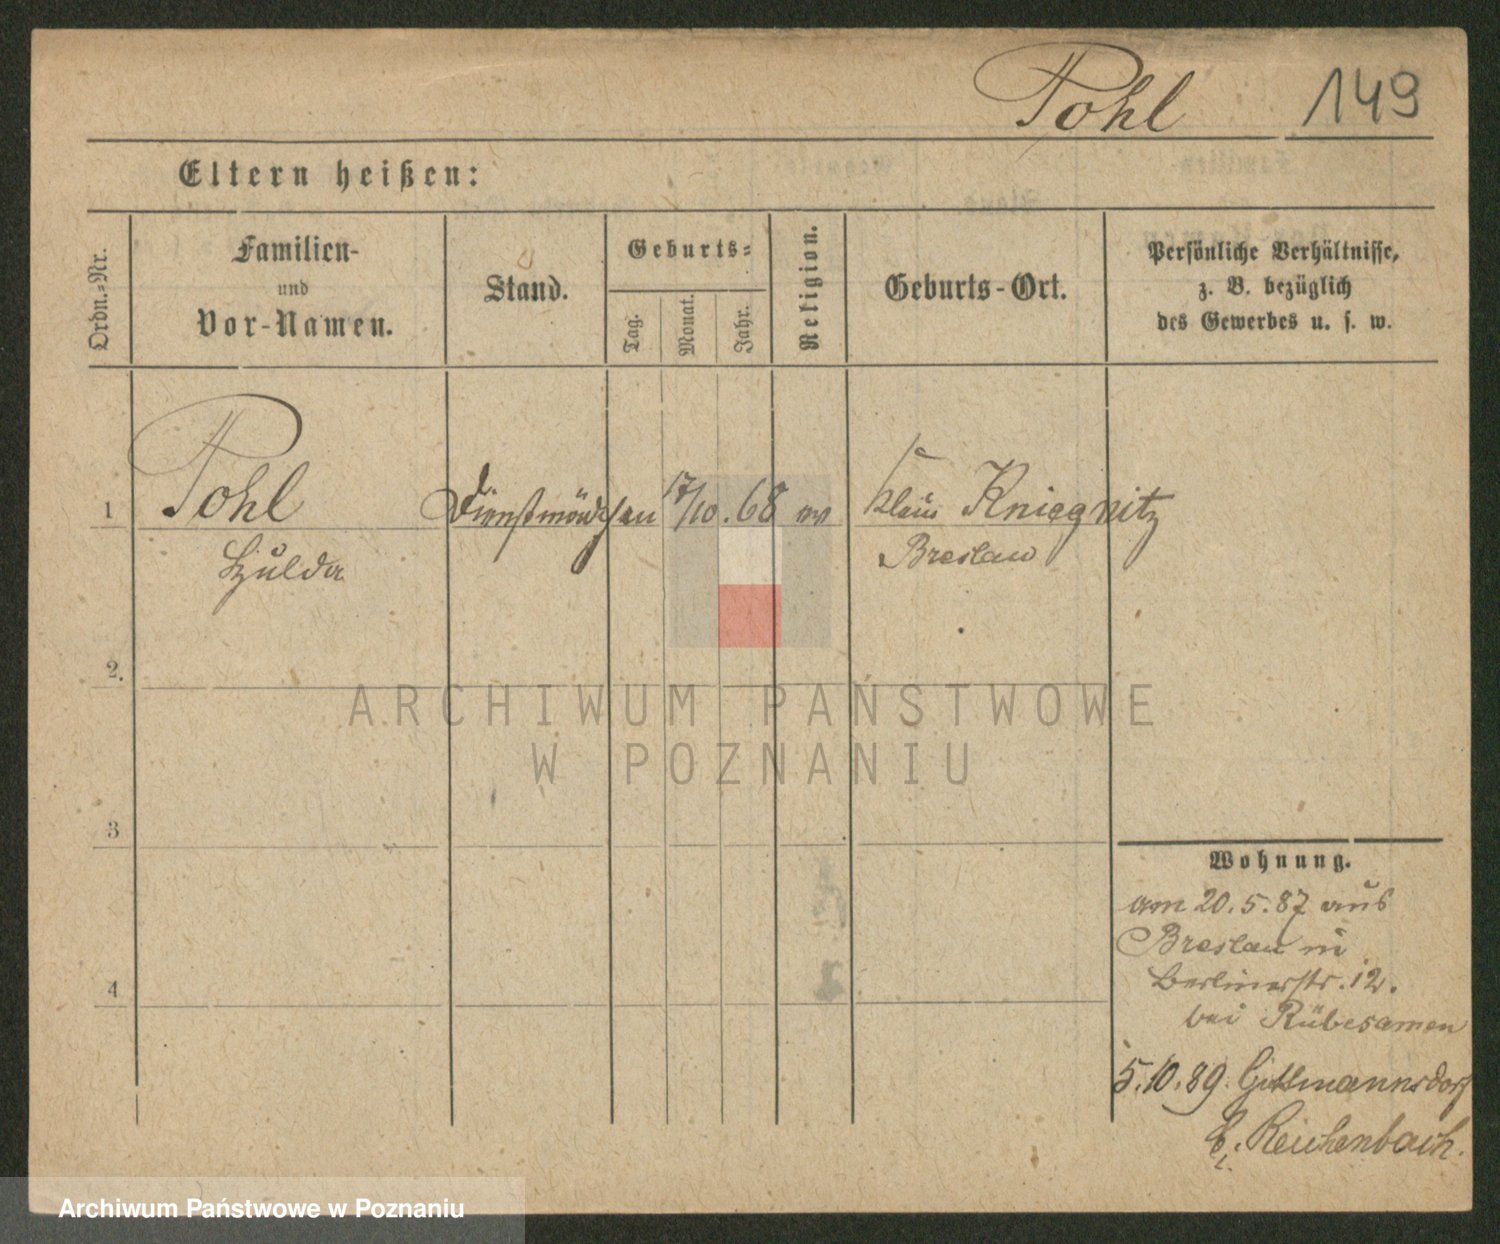 Pohl 149
Eltern heißen:
Ordn.-Nr.
Familien-
und
Vor-Namen.
Stand.
Geburts-
Tag.
Monat.
Jahr.
Religion.
Geburts-Ort.
Persönliche Verhältnisse,
z. B. bezüglich
des Gewerbes u. s. w.
1 Pohl Dienstmädchen 17/10.68 ev Klein Kniegnitz
Hulda Breslau
2.
3
4
Wohnung.
am 20.5.87 aus
Breslau in
Berlinerstr. 12.
bei Rübesamen
5.10.89. Güttmannsdorf
b. Reichenbach.
ARCHIWUM PAŃSTWOWE
W POZNANIU
Archiwum Państwowe w Poznaniu